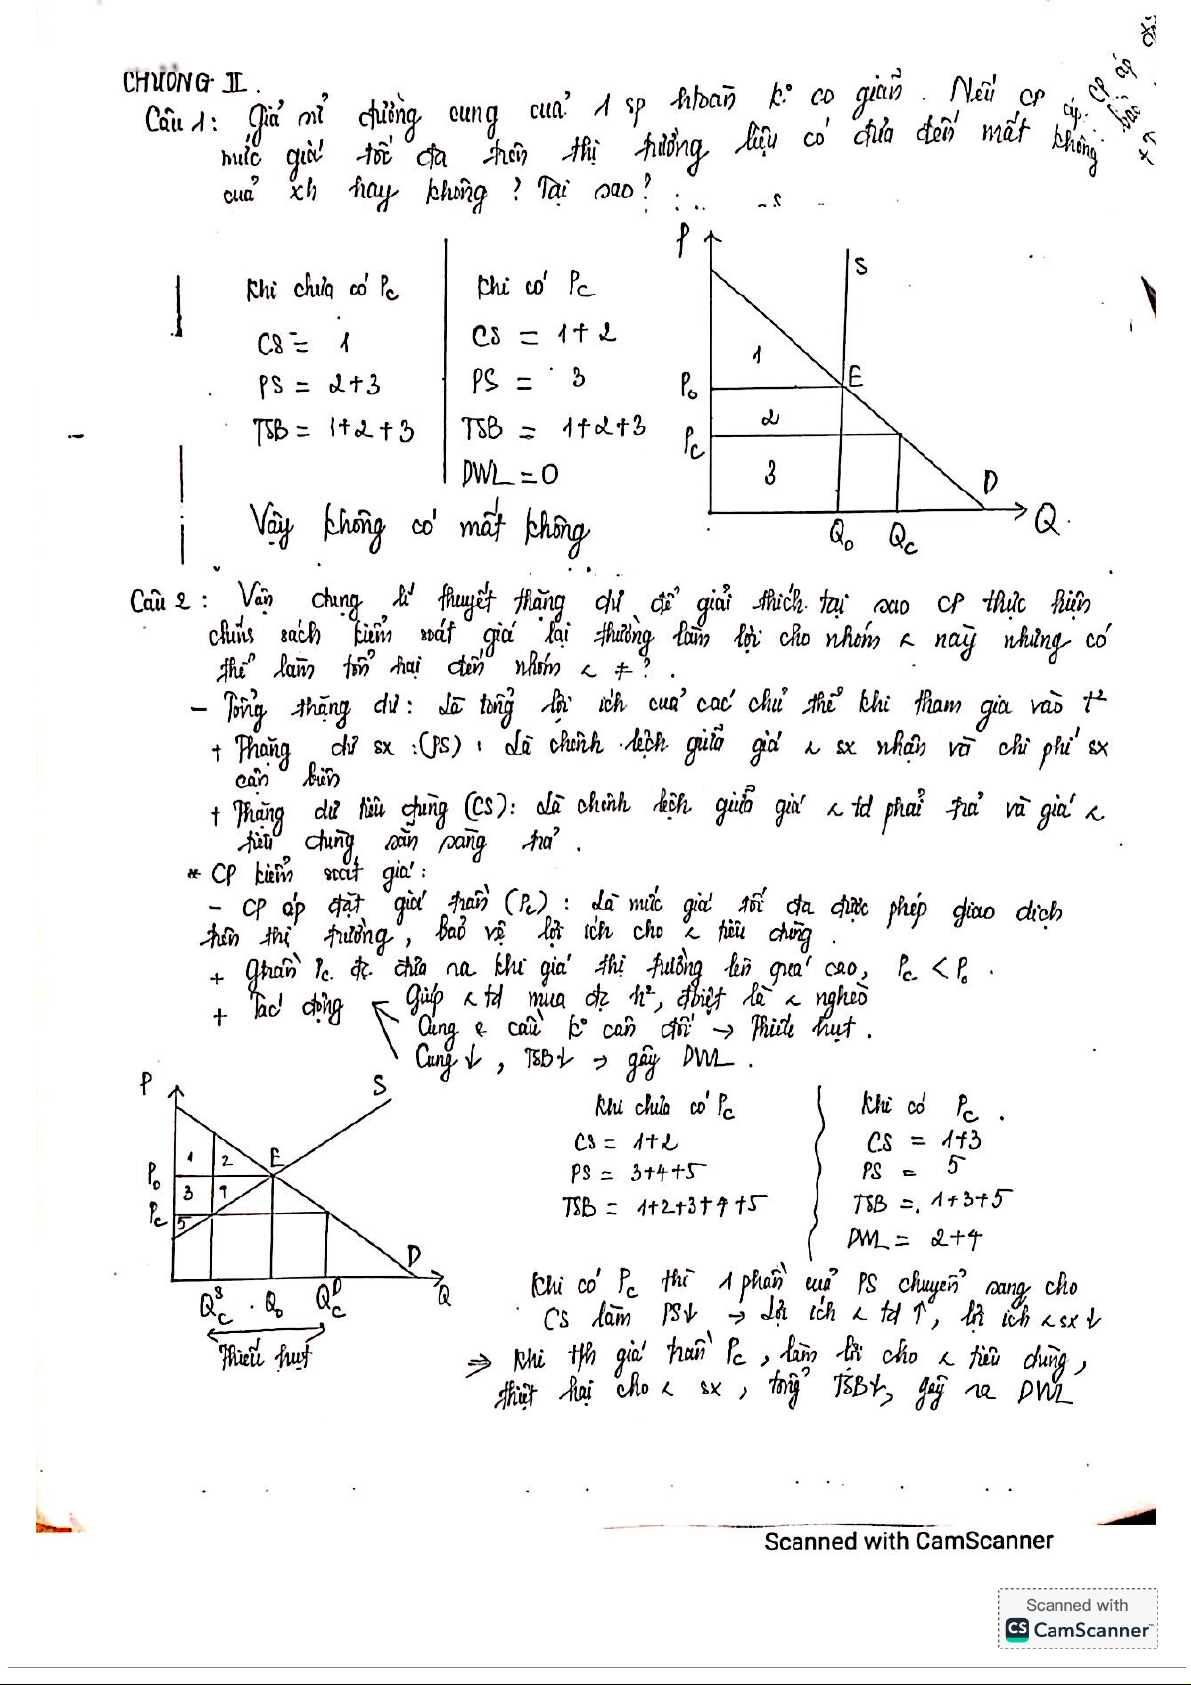 CHƯƠNG II.
Câu 1: Giả sử đường cung của 1 sp hoàn k° co giãn. Nếu CP áp
mức giá tối đa trên thị trường liệu có đưa đến mất không
của xh hay không? Tại sao?
Khi chưa có Pc
CS = 1
PS = 2+3
TSB = 1+2+3
Khi có Pc
CS = 1+2
PS = 3
TSB = 1+2+3
DWL = 0
Vậy không có mất không
P
S
1
P₀
E
2
Pc
3
D
Q₀
Qc
Q
Câu 2: Vận dụng lí thuyết thặng dư để giải thích tại sao CP thực hiện
chính sách kiểm soát giá lại thường làm lợi cho nhóm ng này nhưng có
thể làm tổn hại đến nhóm ng ≠?
- Tổng thặng dư: Là tổng lợi ích của các chủ thể khi tham gia vào t²
+ Thặng dư sx: (PS): Là chênh lệch giữa giá ng sx nhận và chi phí sx
cận biên
+ Thặng dư tiêu dùng (CS): Là chênh lệch giữa giá ng td phải trả và giá ng
tiêu dùng sẵn sàng trả.
* CP kiểm soát giá:
- CP áp đặt giá trần (Pc): Là mức giá tối đa được phép giao dịch
trên thị trường, bảo vệ lợi ích cho ng tiêu dùng.
+ Gtrần Pc đc đưa ra khi giá thị trường lên quá cao, Pc < P₀.
+ Tác động
Giúp ng td mua đc h², đbiệt là ng nghèo
Cung & cầu k° cân đối → Thiếu hụt.
Cung ↓, TSB ↓ → gây DWL.
P
S
1
2
E
P₀
3
4
Pc
5
D
Qcˢ
Q₀
Qcᴰ
Q
Thiếu hụt
Khi chưa có Pc
CS = 1+2
PS = 3+4+5
TSB = 1+2+3+4+5
Khi có Pc.
CS = 1+3
PS = 5
TSB = 1+3+5
DWL = 2+4
Khi có Pc thì 1 phần của PS chuyển sang cho
CS làm PS↓ → Lợi ích ng td ↑, lợi ích ng sx ↓
⇒ Khi th giá trần Pc, làm lợi cho ng tiêu dùng,
thiệt hại cho ng sx, tổng TSB↓, gây ra DWL
Scanned with CamScanner
Scanned with
CS CamScanner